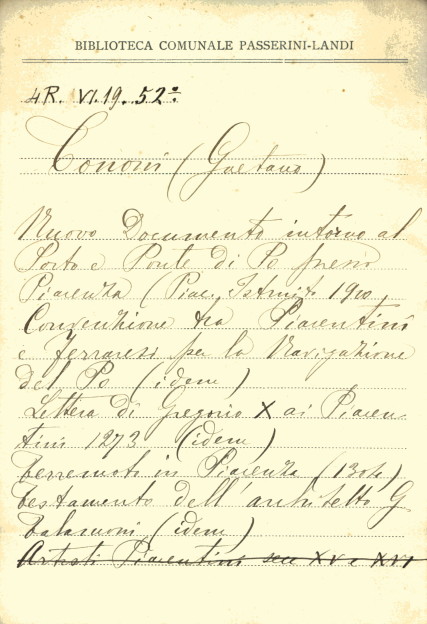 BIBLIOTECA COMUNALE PASSERINI-LANDI
4R. VI.19.52º
Tononi (Gaetano)
Nuovo Documento intorno al
Porto e Ponte di Po presso
Piacenza (Piac. 1900
Convenzione tra Piacentini
e Ferraresi per la Navigazione
del Po (idem)
Lettera di Gregorio X ai Piacen-
tini 1273 (idem)
Terremoto in Piacenza (1304)
Testamento dell'architetto G.
(idem)
Artisti Piacentini sec XV e XVI